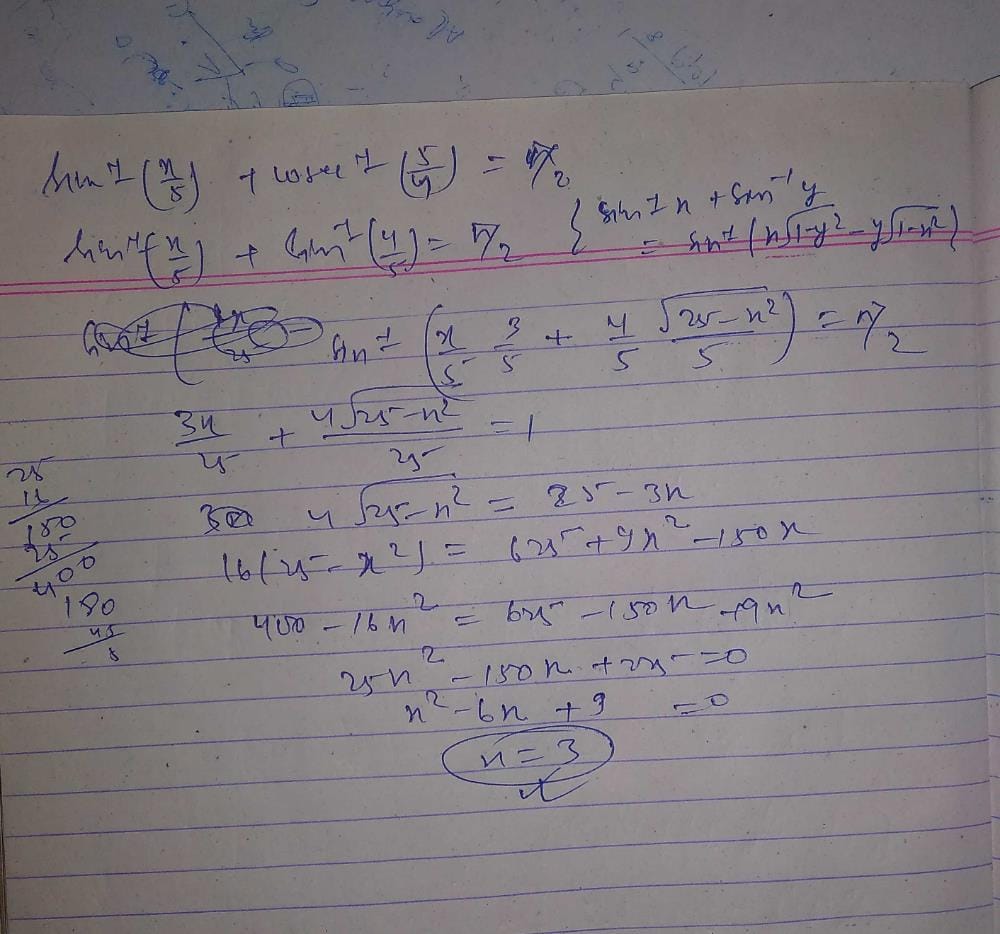 sin⁻¹(x/5) + cosec⁻¹(5/4) = π/2
sin⁻¹(x/5) + sin⁻¹(4/5) = π/2 { sin⁻¹x + sin⁻¹y
= sin⁻¹(x√1-y² - y√1-x²)}
sin⁻¹(x/5 3/5 + 4/5 √25-x²/5) = π/2
3x/25 + 4√25-x²/25 = 1
4√25-x² = 25-3x
16(25-x²) = 625+9x²-150x
400-16x² = 625-150x+9x²
25x²-150x+225=0
x²-6x+9 =0
x=3
25
16
150
25
400
180
45